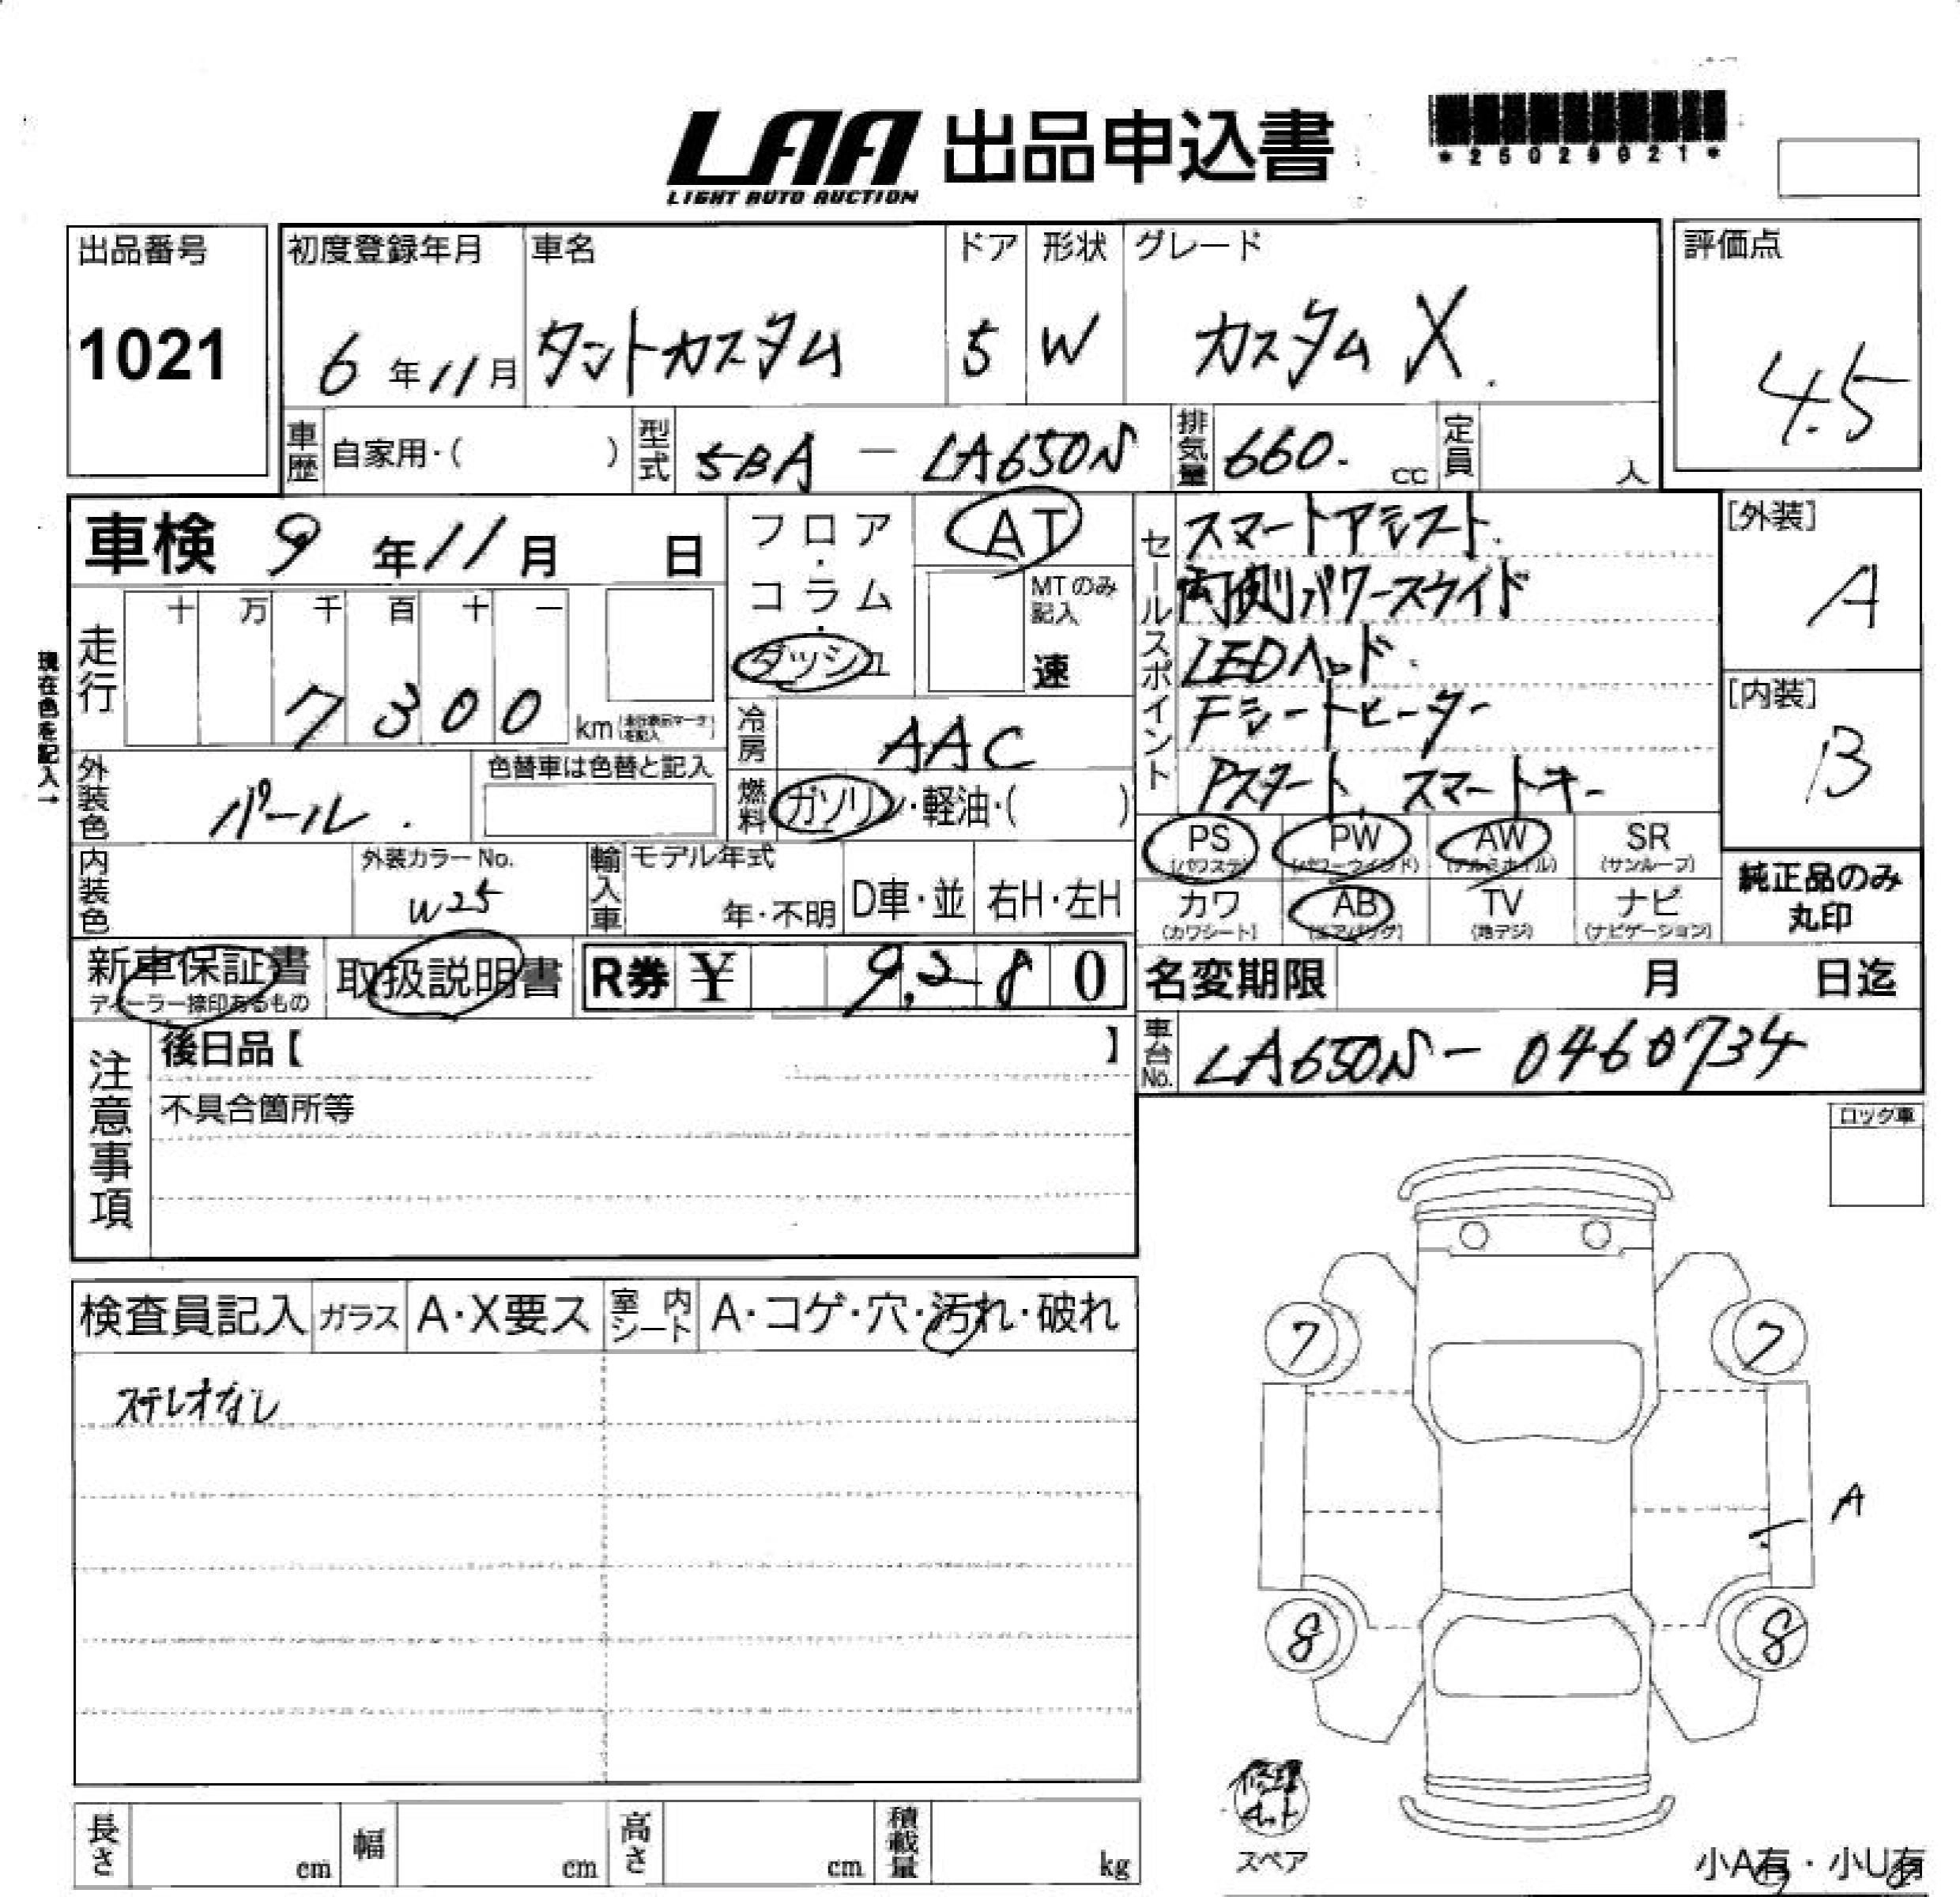 LAA 出品申込書
LIGHT AUTO AUCTION
*25029021*
出品番号
1021
初度登録年月
6年11月
車名
タントカスタム
ドア
5
形状
W
グレード
カスタム X.
評価点
4.5
車歴 自家用・( )
型式 5BA - LA650S
排気量 660. cc
定員 人
車検 9年11月 日
フロア・コラム・ダッシュ
AT
MTのみ記入
速
セールスポイント
スマートアシスト.
両側パワースライド
LEDヘッド.
Fシートヒーター
Pスタート、スマートキー
[外装]
A
[内装]
B
現在色を記入→
走行 十 万 千 百 十 一
7300 km (走行表示マークを記入)
冷房 AAC
外装色 パール.
色替車は色替と記入
燃料 ガソリン・軽油・( )
PS (パワステ) PW (パワーウインド) AW (アルミホイル) SR (サンルーフ)
カワ (カワシート) AB (エアバッグ) TV (地デジ) ナビ (ナビゲーション)
純正品のみ丸印
内装色
外装カラーNo.
W25
輸入車 モデル年式
年・不明
D車・並
右H・左H
新車保証書
ディーラー捺印あるもの
取扱説明書
R券 ¥ 9,280
名変期限 月 日迄
注意事項
後日品【 】
不具合箇所等
車台No. LA650S- 0460734
ロック車
検査員記入 ガラス A・X要ス 室内シート A・コゲ・穴・汚れ・破れ
ステレオなし
7 7
A
8 8
修理キット
スペア
小A有・小U有
長さ cm 幅 cm 高さ cm 積載量 kg